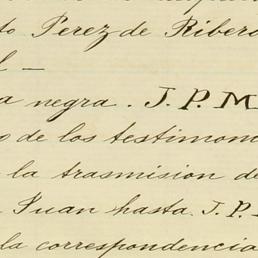 to Perez de Ribero
l —
a negra. J. P. M
o de los testimon
la trasmision de
Juan hasta J. P.
la correspondencia